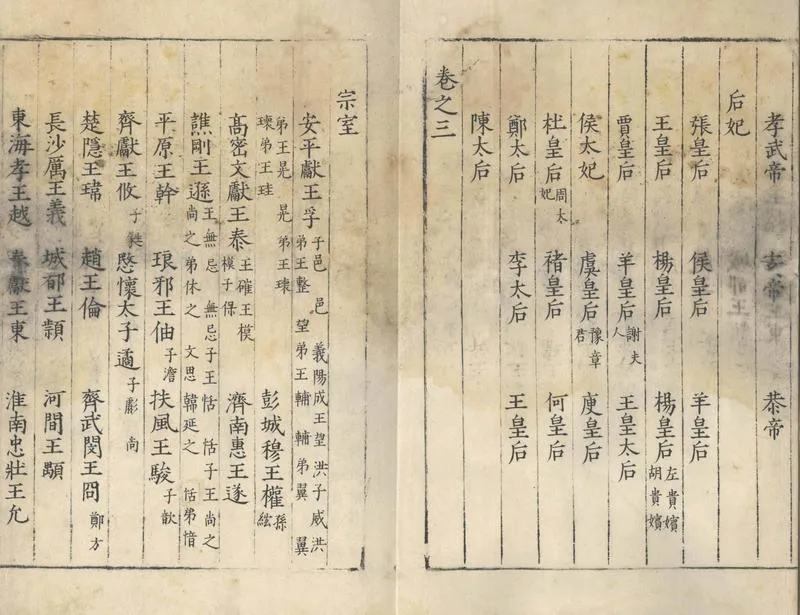 孝武帝 帝 恭帝
后妃
張皇后 侯皇后 羊皇后
王皇后 楊皇后 楊皇后 左貴嬪 胡貴嬪
賈皇后 羊皇后 謝夫人 王皇太后
侯太妃 虞皇后 豫章君 庾皇后
杜皇后 周太妃 褚皇后 何皇后
鄭太后 李太后 王皇后
陳太后
卷之三
宗室
安平獻王孚 子邕 邕弟王整 義陽成王望 望弟王輔 輔弟翼 洪子威 洪 翼
弟王晃 晃弟王瓌 瓌弟王珪 彭城穆王權 孫紘
高密文獻王泰 王確王模 模子保 濟南惠王遂
譙剛王遜 王無忌 無忌子王恬 恬子王尚之 尚之弟休之 文思 韓延之 恬弟愔
平原王幹 琅邪王伷 子澹 扶風王駿 子歆
齊獻王攸 子蕤 愍懷太子遹 子彪 尚
楚隱王瑋 趙王倫 齊武閔王冏 鄭方
長沙厲王義 城都王穎 河間王顒
東海孝王越 秦獻王東 淮南忠壯王允